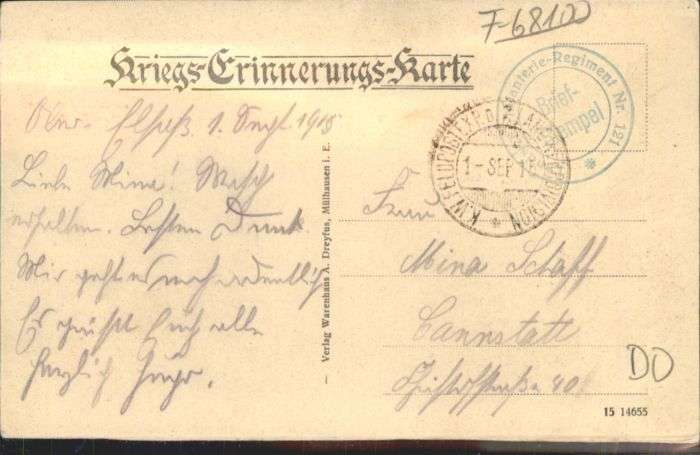 F-68100
Kriegs-Erinnerungs-Karte
Infanterie-Regiment Nr. 121
Brief-
stempel
1 - SEP 1
Ober- Elsaß. 1. Sept. 1915
Liebe Mina!
erhalten. Besten Dank.
Mir geht es noch ordentlich
Es grüßt Euch alle
herzlich Hugo.
Verlag Warenhaus A. Dreyfus, Mülhausen i. E.
Frau
Mina Schaff
Cannstatt
DO
15 14655